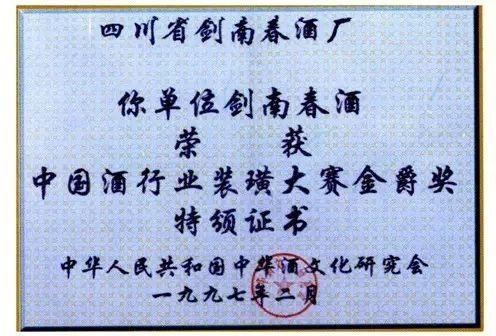 四川省剑南春酒厂
你单位剑南春酒
荣获
中国酒行业装璜大赛金爵奖
特颁证书
中华人民共和国中华酒文化研究会
一九九七年二月